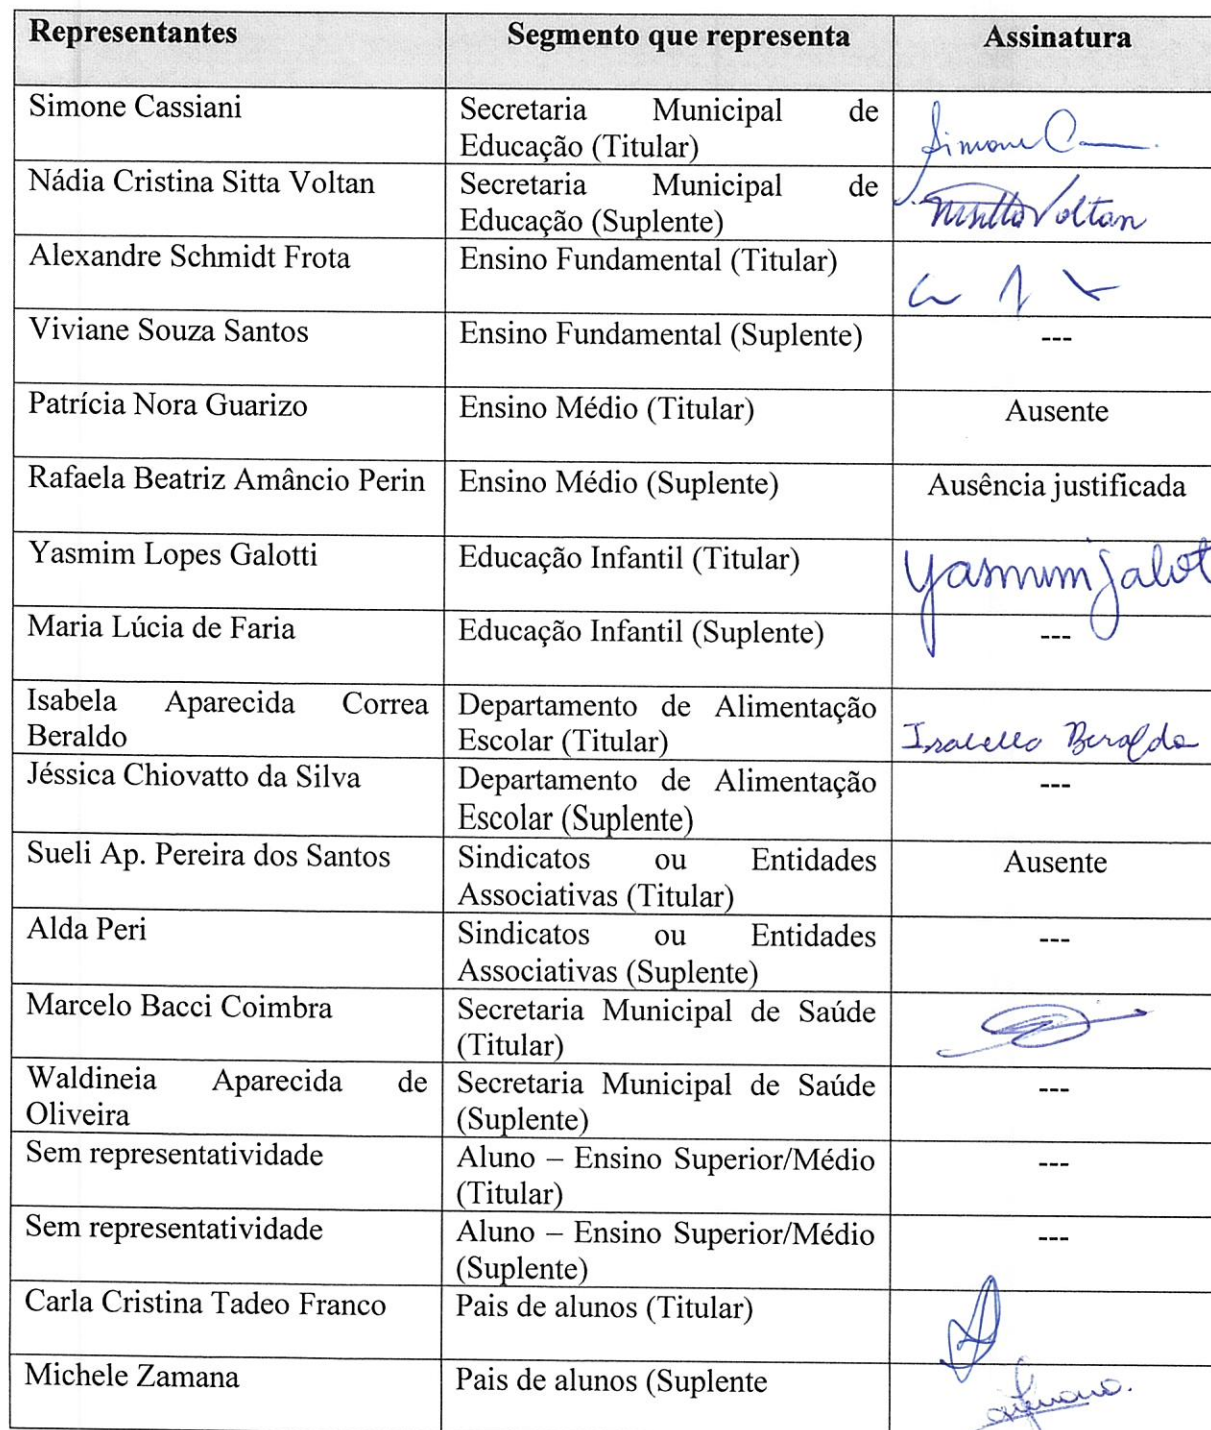 Representantes Segmento que representa Assinatura
Simone Cassiani Secretaria Municipal de
Educação (Titular) Simone
Nádia Cristina Sitta Voltan Secretaria Municipal de
Educação (Suplente) Voltan
Alexandre Schmidt Frota Ensino Fundamental (Titular)
Viviane Souza Santos Ensino Fundamental (Suplente) ---
Patrícia Nora Guarizo Ensino Médio (Titular) Ausente
Rafaela Beatriz Amâncio Perin Ensino Médio (Suplente) Ausência justificada
Yasmim Lopes Galotti Educação Infantil (Titular) Yasmim Galot
Maria Lúcia de Faria Educação Infantil (Suplente) ---
Isabela Aparecida Correa Departamento de Alimentação
Beraldo Escolar (Titular) Isabella Beraldo
Jéssica Chiovatto da Silva Departamento de Alimentação ---
Escolar (Suplente)
Sueli Ap. Pereira dos Santos Sindicatos ou Entidades Ausente
Associativas (Titular)
Alda Peri Sindicatos ou Entidades ---
Associativas (Suplente)
Marcelo Bacci Coimbra Secretaria Municipal de Saúde
(Titular)
Waldineia Aparecida de Secretaria Municipal de Saúde ---
Oliveira (Suplente)
Sem representatividade Aluno – Ensino Superior/Médio ---
(Titular)
Sem representatividade Aluno – Ensino Superior/Médio ---
(Suplente)
Carla Cristina Tadeo Franco Pais de alunos (Titular)
Michele Zamana Pais de alunos (Suplente